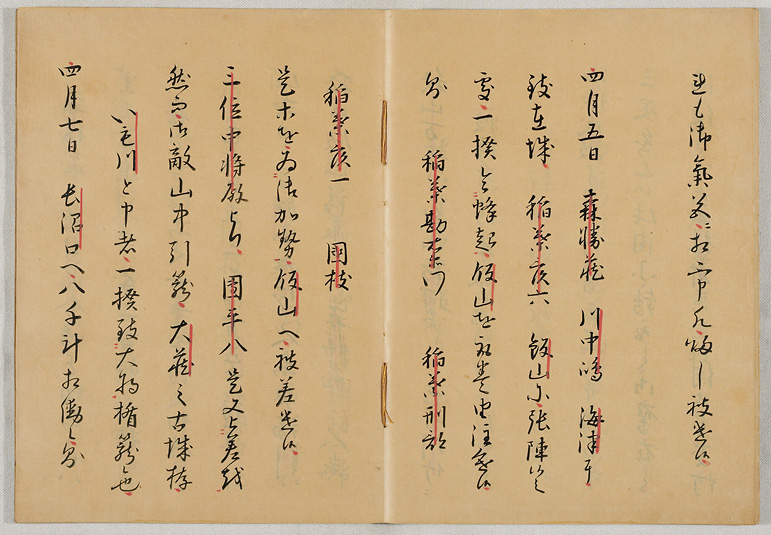 被遣候
四月五日 森勝蔵 川中嶋 海津ニ
致在城 稲葉彦六 飯山ニ張陣候
處一揆令蜂起飯山を取巻由注進候
則 稲葉勘右衛門 稲葉刑部
稲葉彦一 國枝
是等を為御加勢飯山へ被差遣候
三位中将殿より 團平八是又被差越
然而御敵山中引籠大蔵之古城拵
いも川と申者一揆致大将楯籠也
四月七日 長沼口へ八千計相働候則